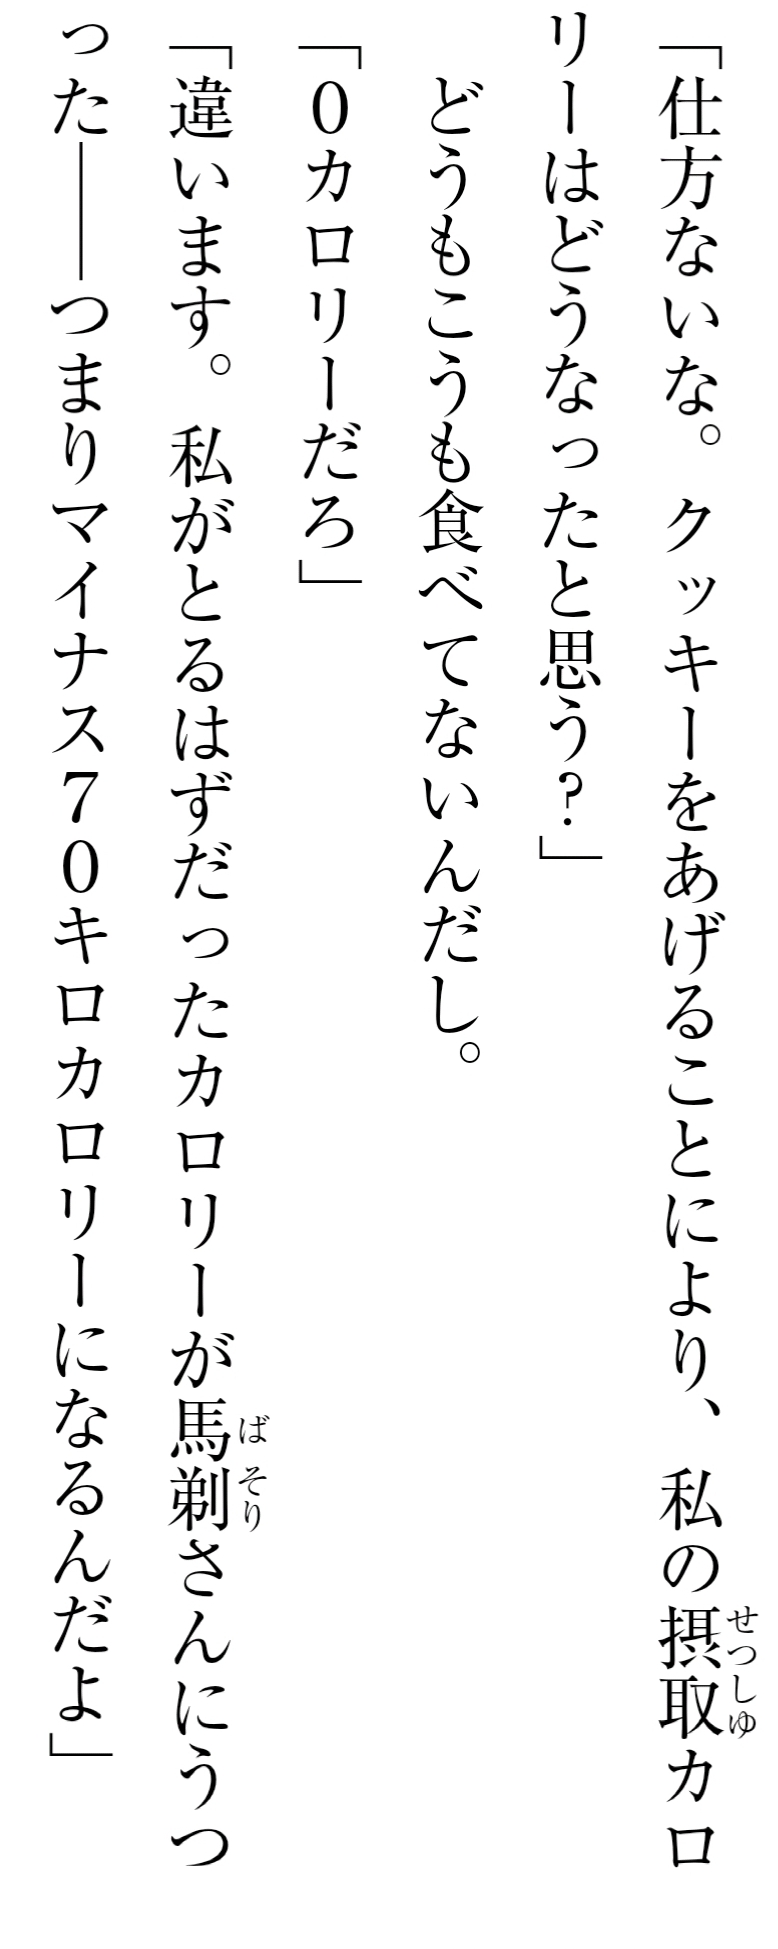 「仕方ないな。クッキーをあげることにより、私の摂取カロ
リーはどうなったと思う？」
　どうもこうも食べてないんだし。
「０カロリーだろ」
「違います。私がとるはずだったカロリーが馬剃さんにうつ
った――つまりマイナス７０キロカロリーになるんだよ」